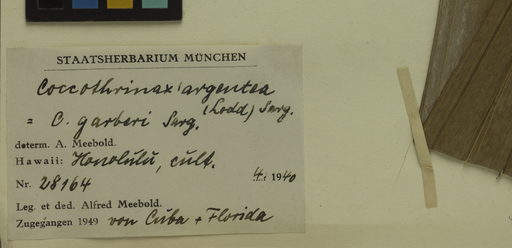 STAATSHERBARIUM MÜNCHEN
Coccothrinax argentea
(Lodd) Sarg.
= C. garberi Sarg.
determ. A. Meebold.
Hawaii: Honolulu, cult.
Nr. 28164 4. 1940
Leg. et ded. Alfred Meebold.
Zugegangen 1949 von Cuba + Florida